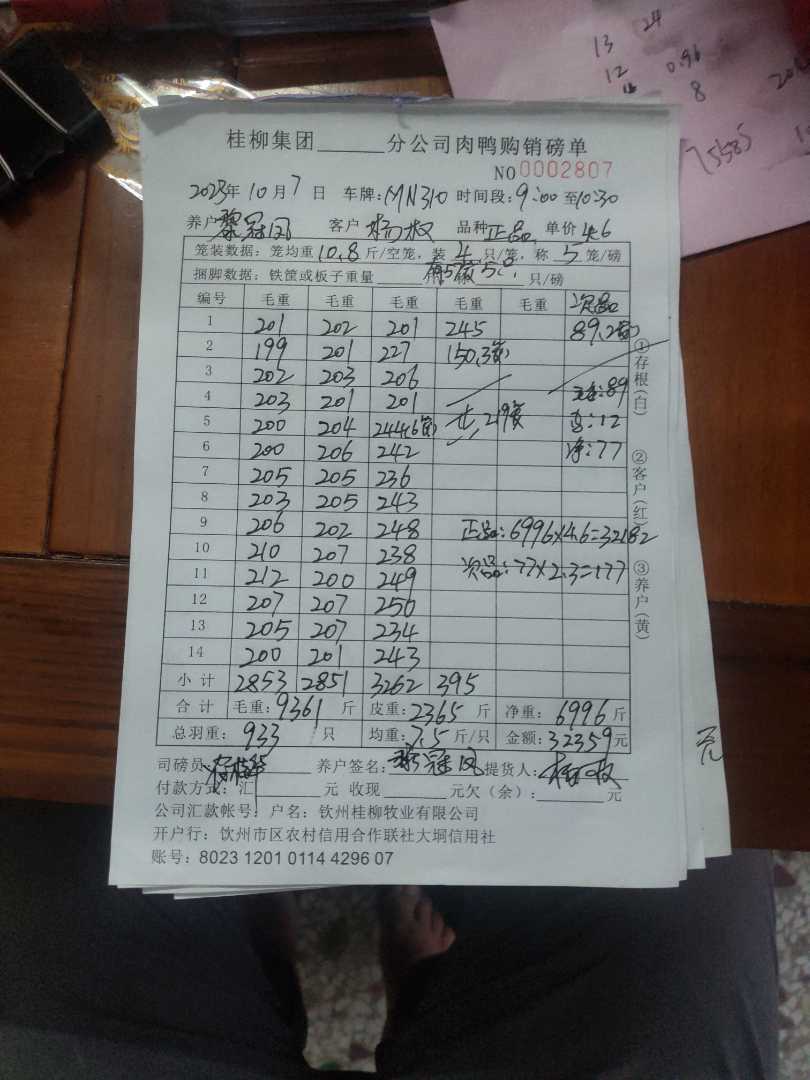 13 24
12 0.96
8
桂柳集团______分公司肉鸭购销磅单
NO 0002807
2023年 10月7日 车牌:MN310 时间段:9:00至10:30
养户 黎冠凤 客户 杨权 品种 正品 单价 4.6
笼装数据:笼均重10.8斤/空笼,装4只/笼,称5笼/磅
捆脚数据:铁筐或板子重量______ 只/磅
编号 毛重 毛重 毛重 毛重 毛重 次品
1 201 202 201 245 89.2
2 199 201 227 150.3
3 202 203 206
4 203 201 201 毛:89
5 200 204 244.6 共219笼 皮:12
6 200 206 242 净:77
7 205 205 236
8 203 205 243
9 206 202 248 正品:6996×4.6=32182
10 210 207 238
11 212 200 249 次品:77×2.3=177
12 207 207 250
13 205 207 234
14 200 201 243
小计 2853 2851 3262 395
合计 毛重:9361斤 皮重:2365斤 净重:6996斤
总羽重:933只 均重:7.5斤/只 金额:32359元
司磅员: 养户签名: 提货人:
付款方式:汇______元 收现______元欠(余):______元
公司汇款帐号:户名:钦州桂柳牧业有限公司
开户行:钦州市区农村信用合作联社大垌信用社
账号:8023 1201 0114 4296 07
①存根(白)
②客户(红)
③养户(黄)
元